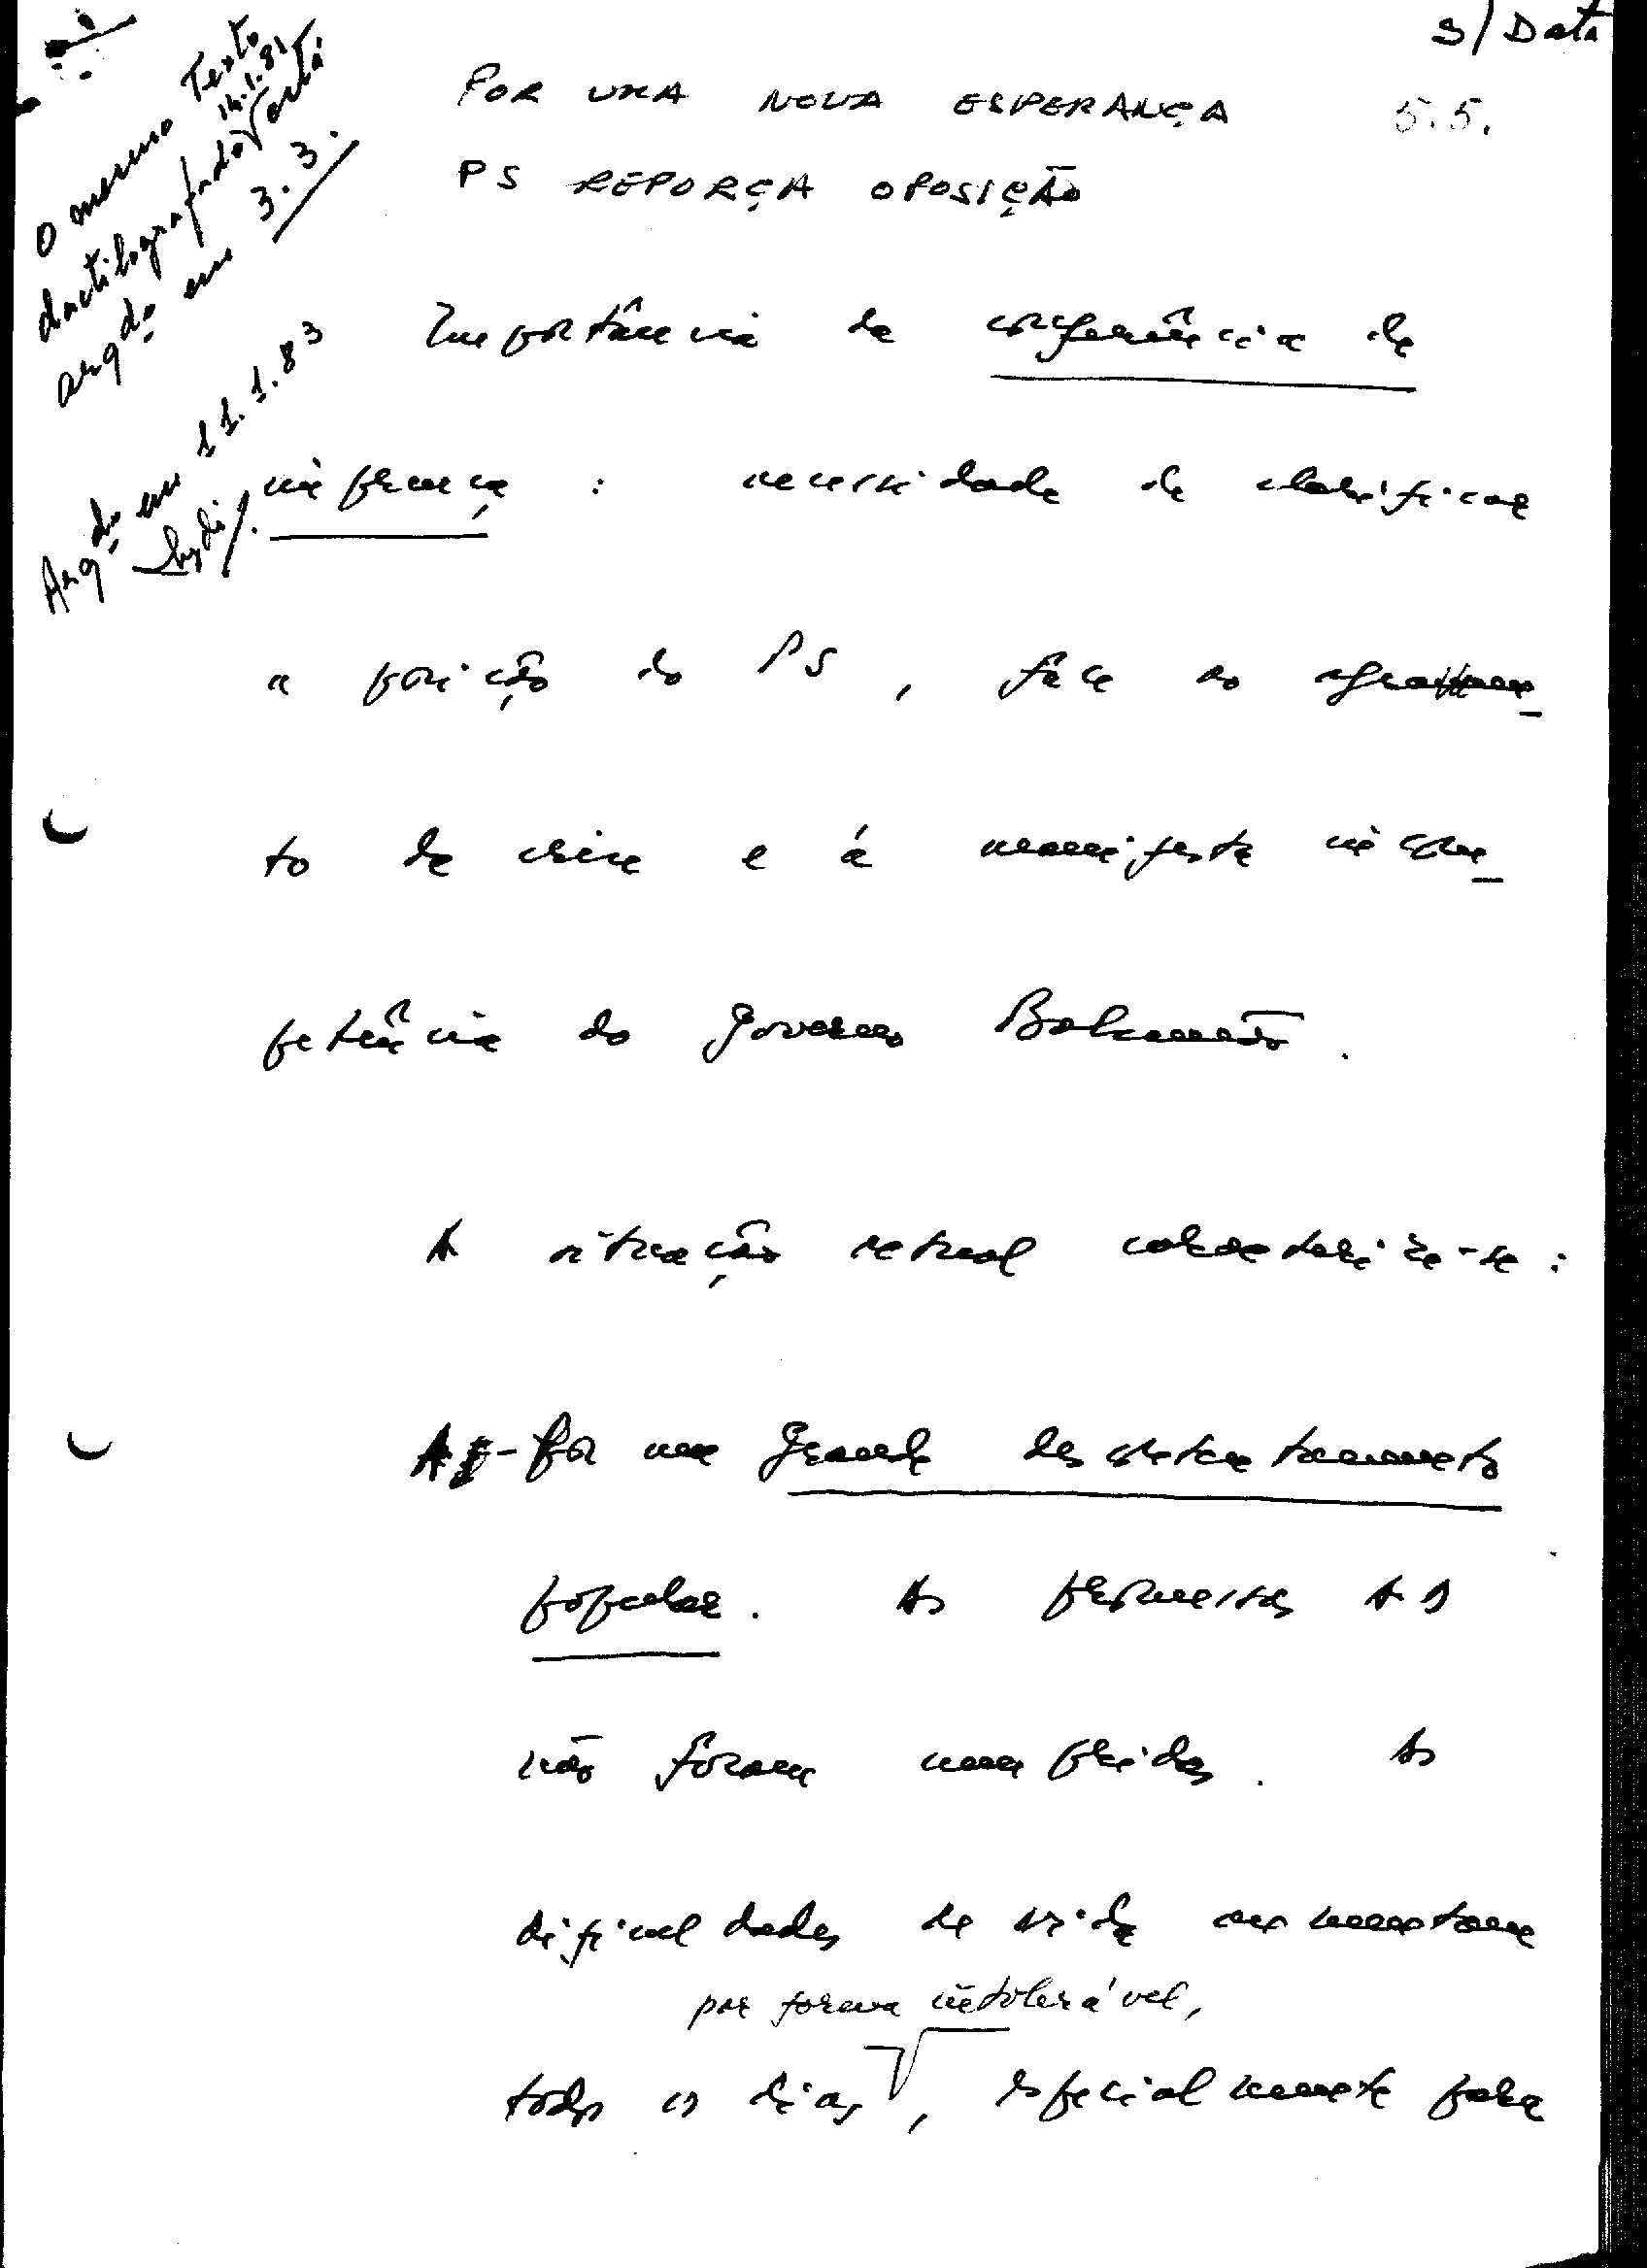 S/ Data
5.5.
O mesmo Texto
dactilografado
14.1.81
arq.do em 3.3.
Arq.do em 11.1.83
POR UMA NOVA ESPERANÇA
PS REFORÇA OPOSIÇÃO
Importância da conferência de
imprensa : necessidade de clarificar
a posição do PS, face ao agravamen
to da crise e à manifesta incom
petência do Governo Balsemão.
A situação actual caracteriza-se :
Por um grande descontentamento
popular. As promessas AD
não foram cumpridas. As
dificuldades de vida aumentam
por forma intolerável,
todos os dias, especialmente para